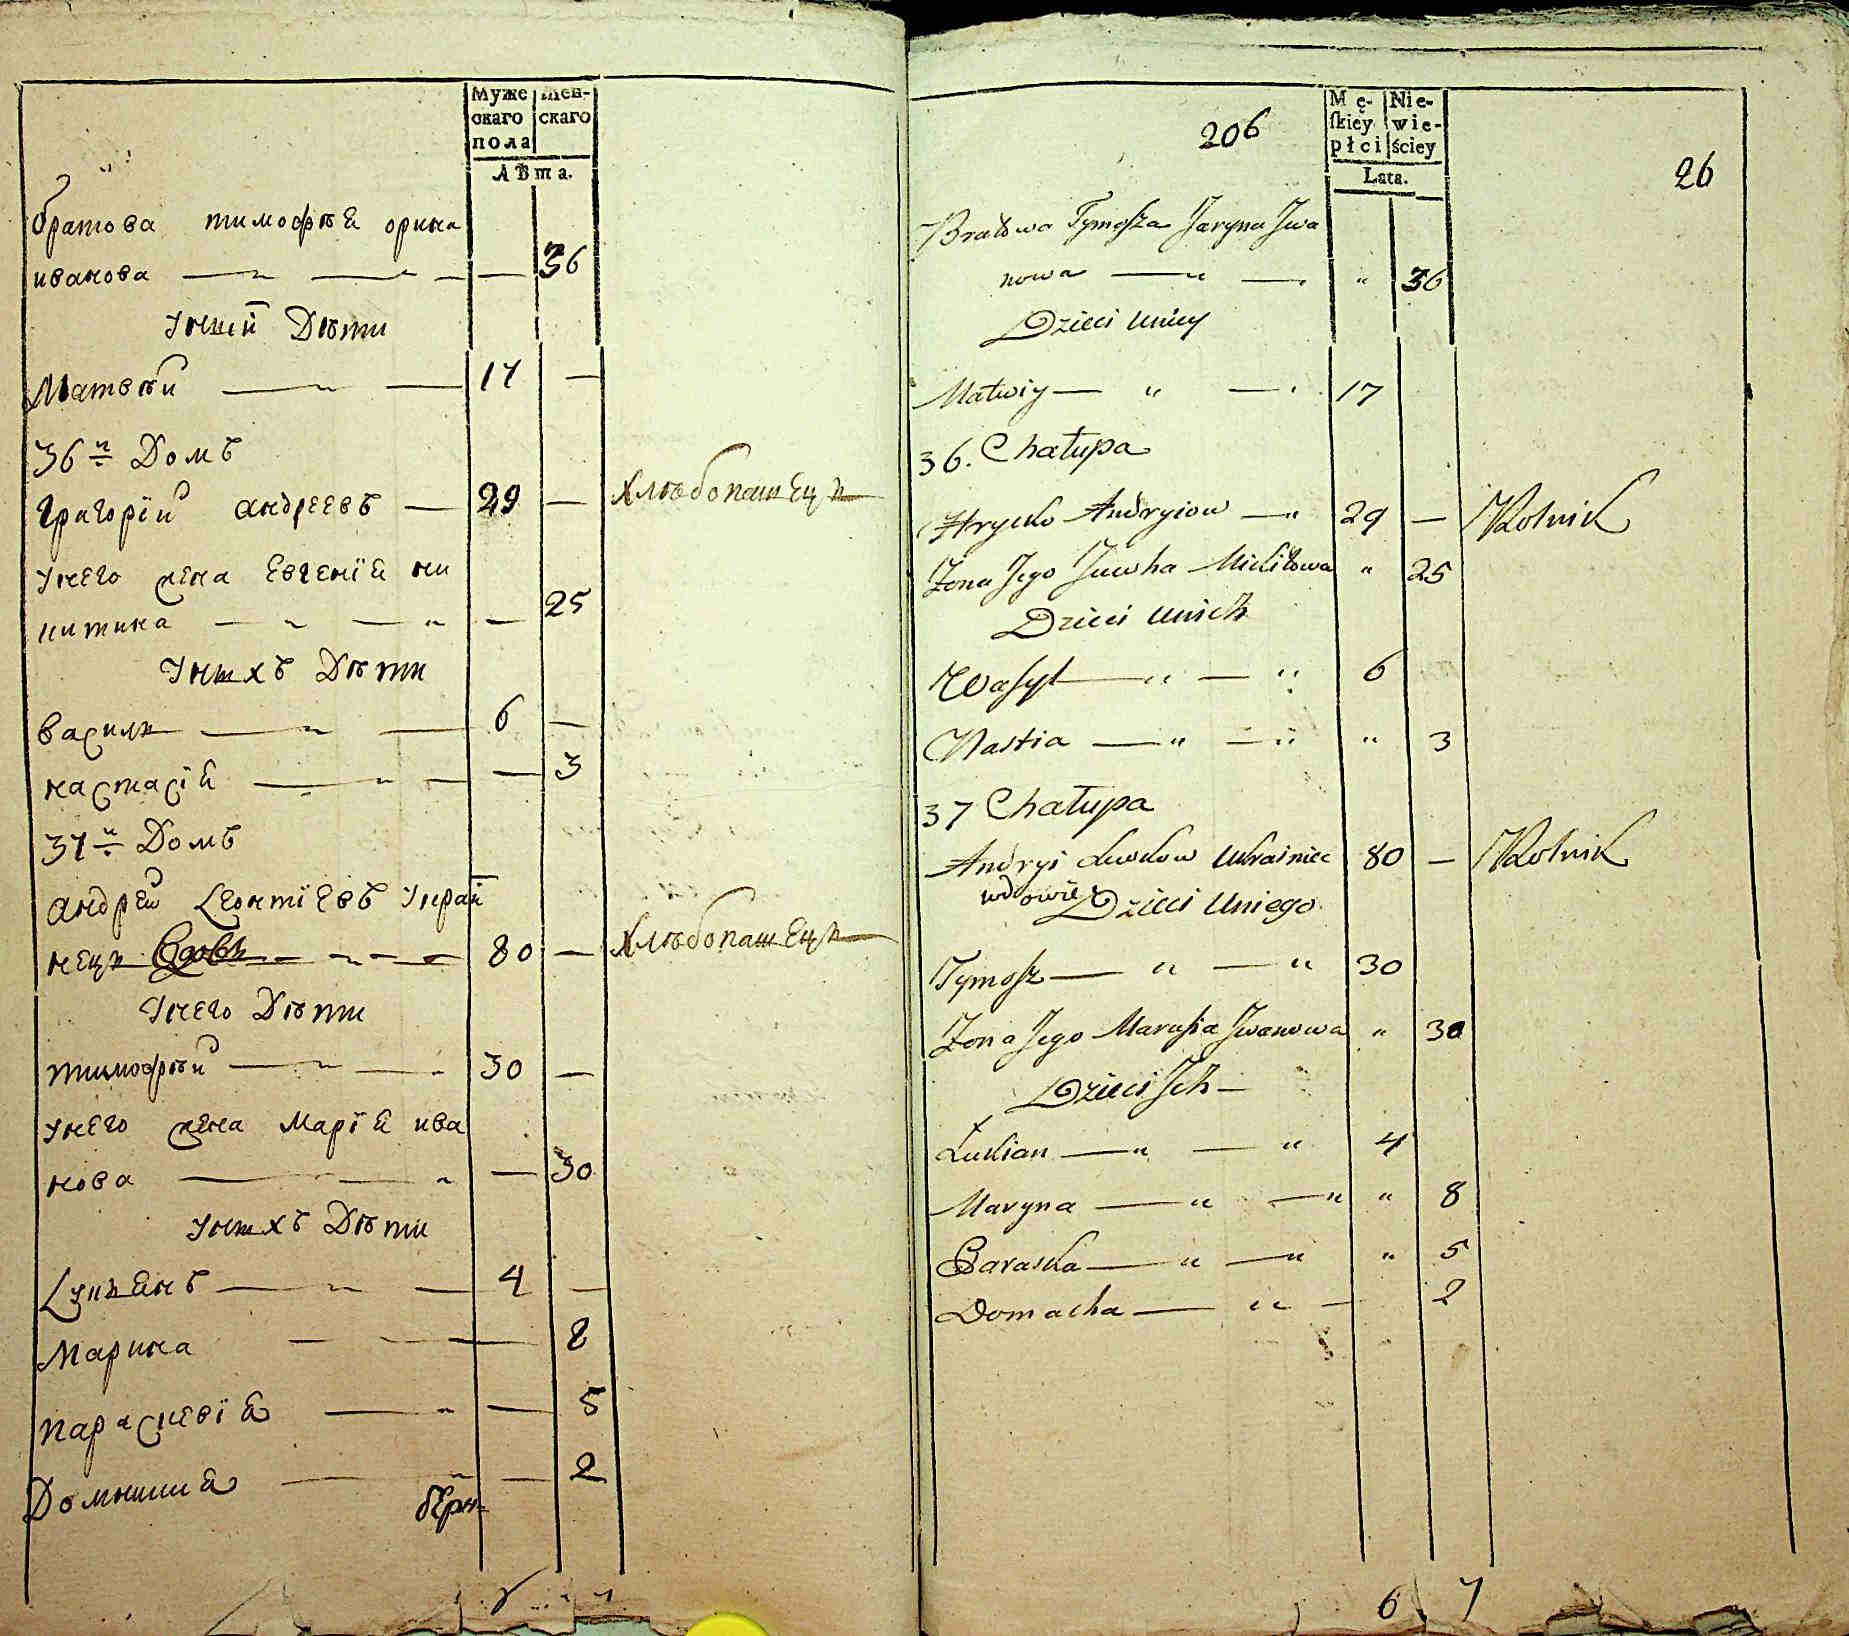 Муже скаго пола
Жен- скаго
Лѣта.
братова тимофѣя орина
иванова 36
у ней Дѣти
Матвѣй 17
36й Домъ
григорій андреевъ 29 хлѣбопашецъ
у него жена евгенія ни
китина 25
у нихъ Дѣти
василь 6
настасія 3
37й Домъ
андрей леонтіевъ украй
нецъ вдовъ 80 хлѣбопашецъ
у него Дѣти
тимофѣй 30
у него жена Марія ива
нова 30
у нихъ Дѣти
лукьянъ 4
Марина 8
параскевія 5
Домникия 2
206
26
Mę- ſkiey płci
Nie- wie- ściey
Lata.
Bratowa Tymosza Jaryna Jwa
nowa " 36
Dzieci Uniey
Matwiy " 17
36. Chałupa
Hryćko Andryiow " 29 — Rolnik
Żona Jego Juwha Mikitowa " 25
Dzieci Unich
Wasyl " " 6
Nastia " " " 3
37 Chałupa
Andryi Lewkow Ukrainiec 80 — Rolnik
wdowiec Dzieci Uniego
Tymosz " " 30
Żona Jego Marusia Jwanowa " 30
Dzieci Jch
Łukian " " 4
Maryna " " " 8
Paraska " " " 5
Domacha " 2
6 7